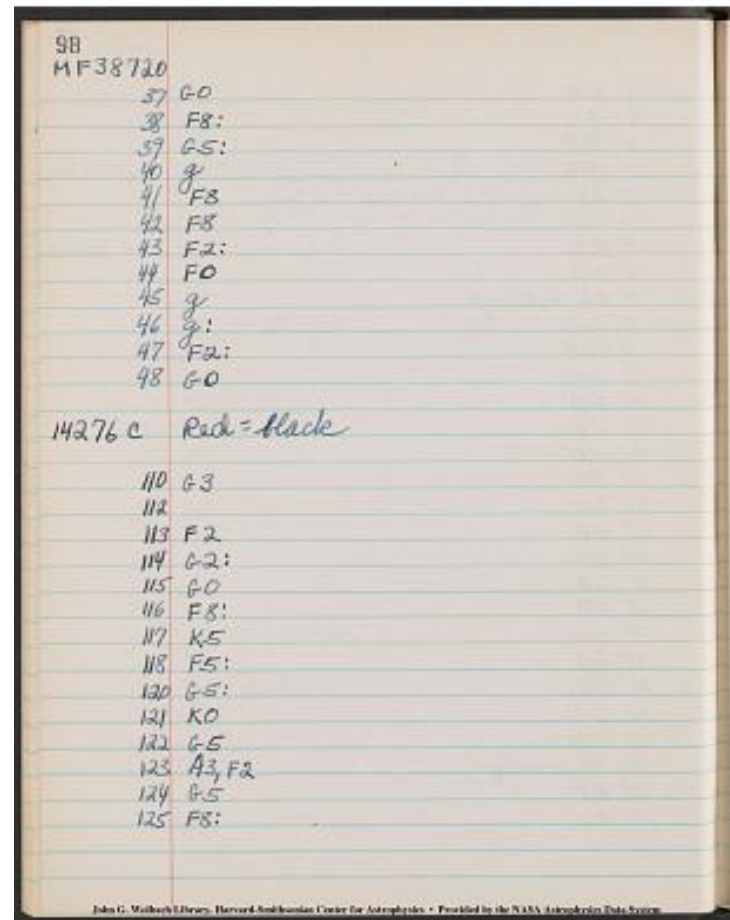 98
MF38720
37 G0
38 F8:
39 G5:
40 g
41 F8
42 F8
43 F2:
44 F0
45 g
46 g:
47 F2:
48 G0
14276 C Red = black
110 G3
112
113 F2
114 G2:
115 G0
116 F8:
117 K5
118 F5:
120 G5:
121 K0
122 G5
123 A3, F2
124 G5
125 F8:
John G. Wolbach Library, Harvard-Smithsonian Center for Astrophysics • Provided by the NASA Astrophysics Data System